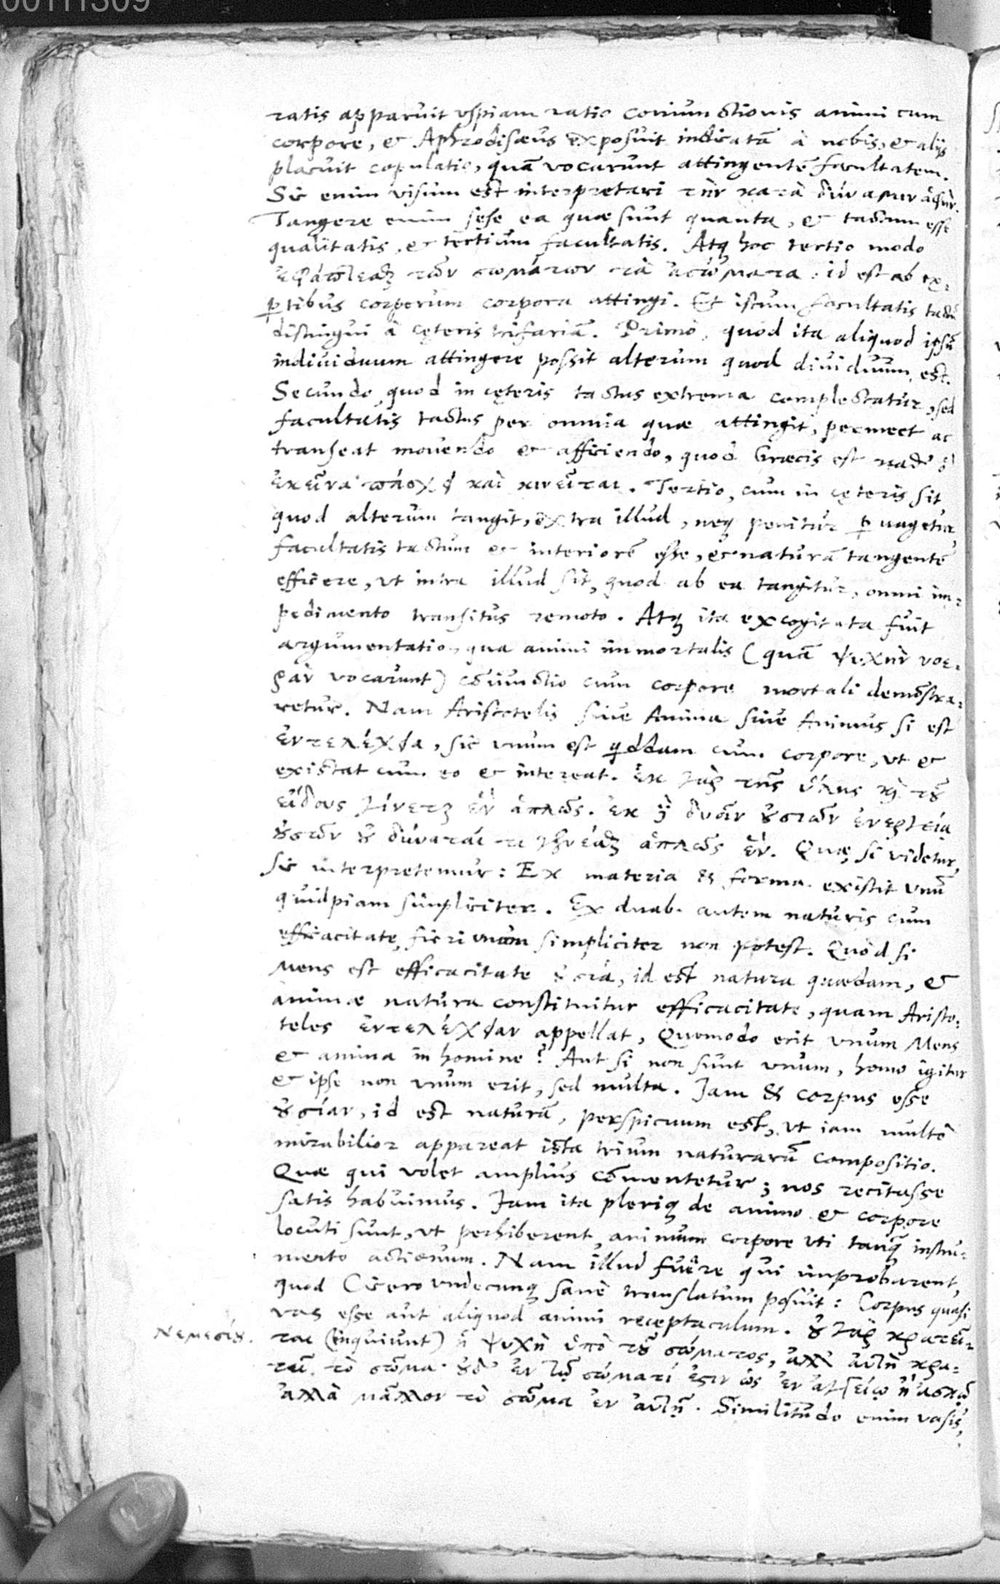 00111309
ratis apparuit uspiam ratio coniunctionis animi cum
corpore, et Aphrodisæus exposuit indicatā à nobis, et alijs
placuit copulatio, quā vocarunt attingentē facultatem.
Sic enim visum est interpretari τὴν κατὰ δύναμιν ἁφήν.
Tangere enim sese ea quæ sunt quanta, et tactum esse
qualitatis, et tertium facultatis. Atq; hoc tertio modo
τῶν σωμάτων τὰ ἀσώματα: id est ab ex-
ꝑtibus corporum corpora attingi. Et istum facultatis tactū
distingui à cęteris trifariā. Primo, quod ita aliquod ipsū
individuum attingere possit alterum quod dividuum est.
Secundo quod in cęteris tactus extrema complectatur, sed
facultatis tactus per omnia quæ attingit, permeet ac
transeat movendo et afficiendo, quod Græcis est καθ' ὃ
ἐκεῖνα πάσχει καὶ κινεῖται. Tertio, cum in cęteris sit
quod alterum tangit, extra illud, neq; penitus ꝑvagetur,
facultatis tactum et interiorē esse, et naturā tangentē
efficere, ut intra illud sit, quod ab ea tangitur, omni im-
pedimento transitus remoto. Atq; ita excogitata fuit
argumentatio, qua animi immortalis (quā ψυχὴν νοε-
ρὰν vocarunt) cōiunctio cum corpore mortali demōstra-
retur. Nam Aristotelis sive Anima sive Animus si est
ἐντελέχεια, sic unum est qiddam cum corpore, ut et
existat cum eo et intereat. ἐκ γὰρ τῆς ὕλης καὶ τοῦ
εἴδους γίνεται ἓν ἁπλῶς. ἐκ δὲ δυοῖν οὐσιῶν ἐνεργείᾳ
οὐσῶν οὐ δύναταί τι γενέσθαι ἁπλῶς ἕν. Quæ si videtur,
sic interpretemur: Ex materia et forma existit unū
quidpiam simpliciter. Ex duab. autem naturis cum
efficacitate, fieri unum simpliciter non potest. Quod si
Mens est efficacitate οὐσία, id est natura quædam, et
animæ natura constituitur efficacitate, quam Aristo-
teles ἐντελέχειαν appellat, Quomodo erit unum Mens
et anima in homine? Aut si non sunt unum, homo igitur
et ipse non unum erit, sed multa. Jam et corpus esse
οὐσίαν, id est naturā, perspicuum est, ut iam multò
mirabilior appareat ista trium naturarū compositio.
Quæ qui volet amplius cōmentetur; nos recitasse
satis habuimus. Jam ita pleriq; de animo et corpore
locuti sunt, ut perhiberent, animum corpore uti tanq̄ instru-
mento actionum. Nam illud fuêre qui improbarent,
quod Cicero undecunq; sanè translatum posuit: Corpus quasi
vas esse aut aliquod animi receptaculum. οὐ γὰρ κρατεῖ-
Νεμεσίου.
ται (inquiunt) ἡ ψυχὴ ὑπὸ τοῦ σώματος, ἀλλ' αὐτὴ κρα-
τεῖ τὸ σῶμα· οὐδ' ἐν τῷ σώματί ἐστιν ὡς ἐν ἀγγείῳ ἢ ἀσκῷ
ἀλλὰ μᾶλλον τὸ σῶμα ἐν αὐτῇ. Similitudo enim vasis,